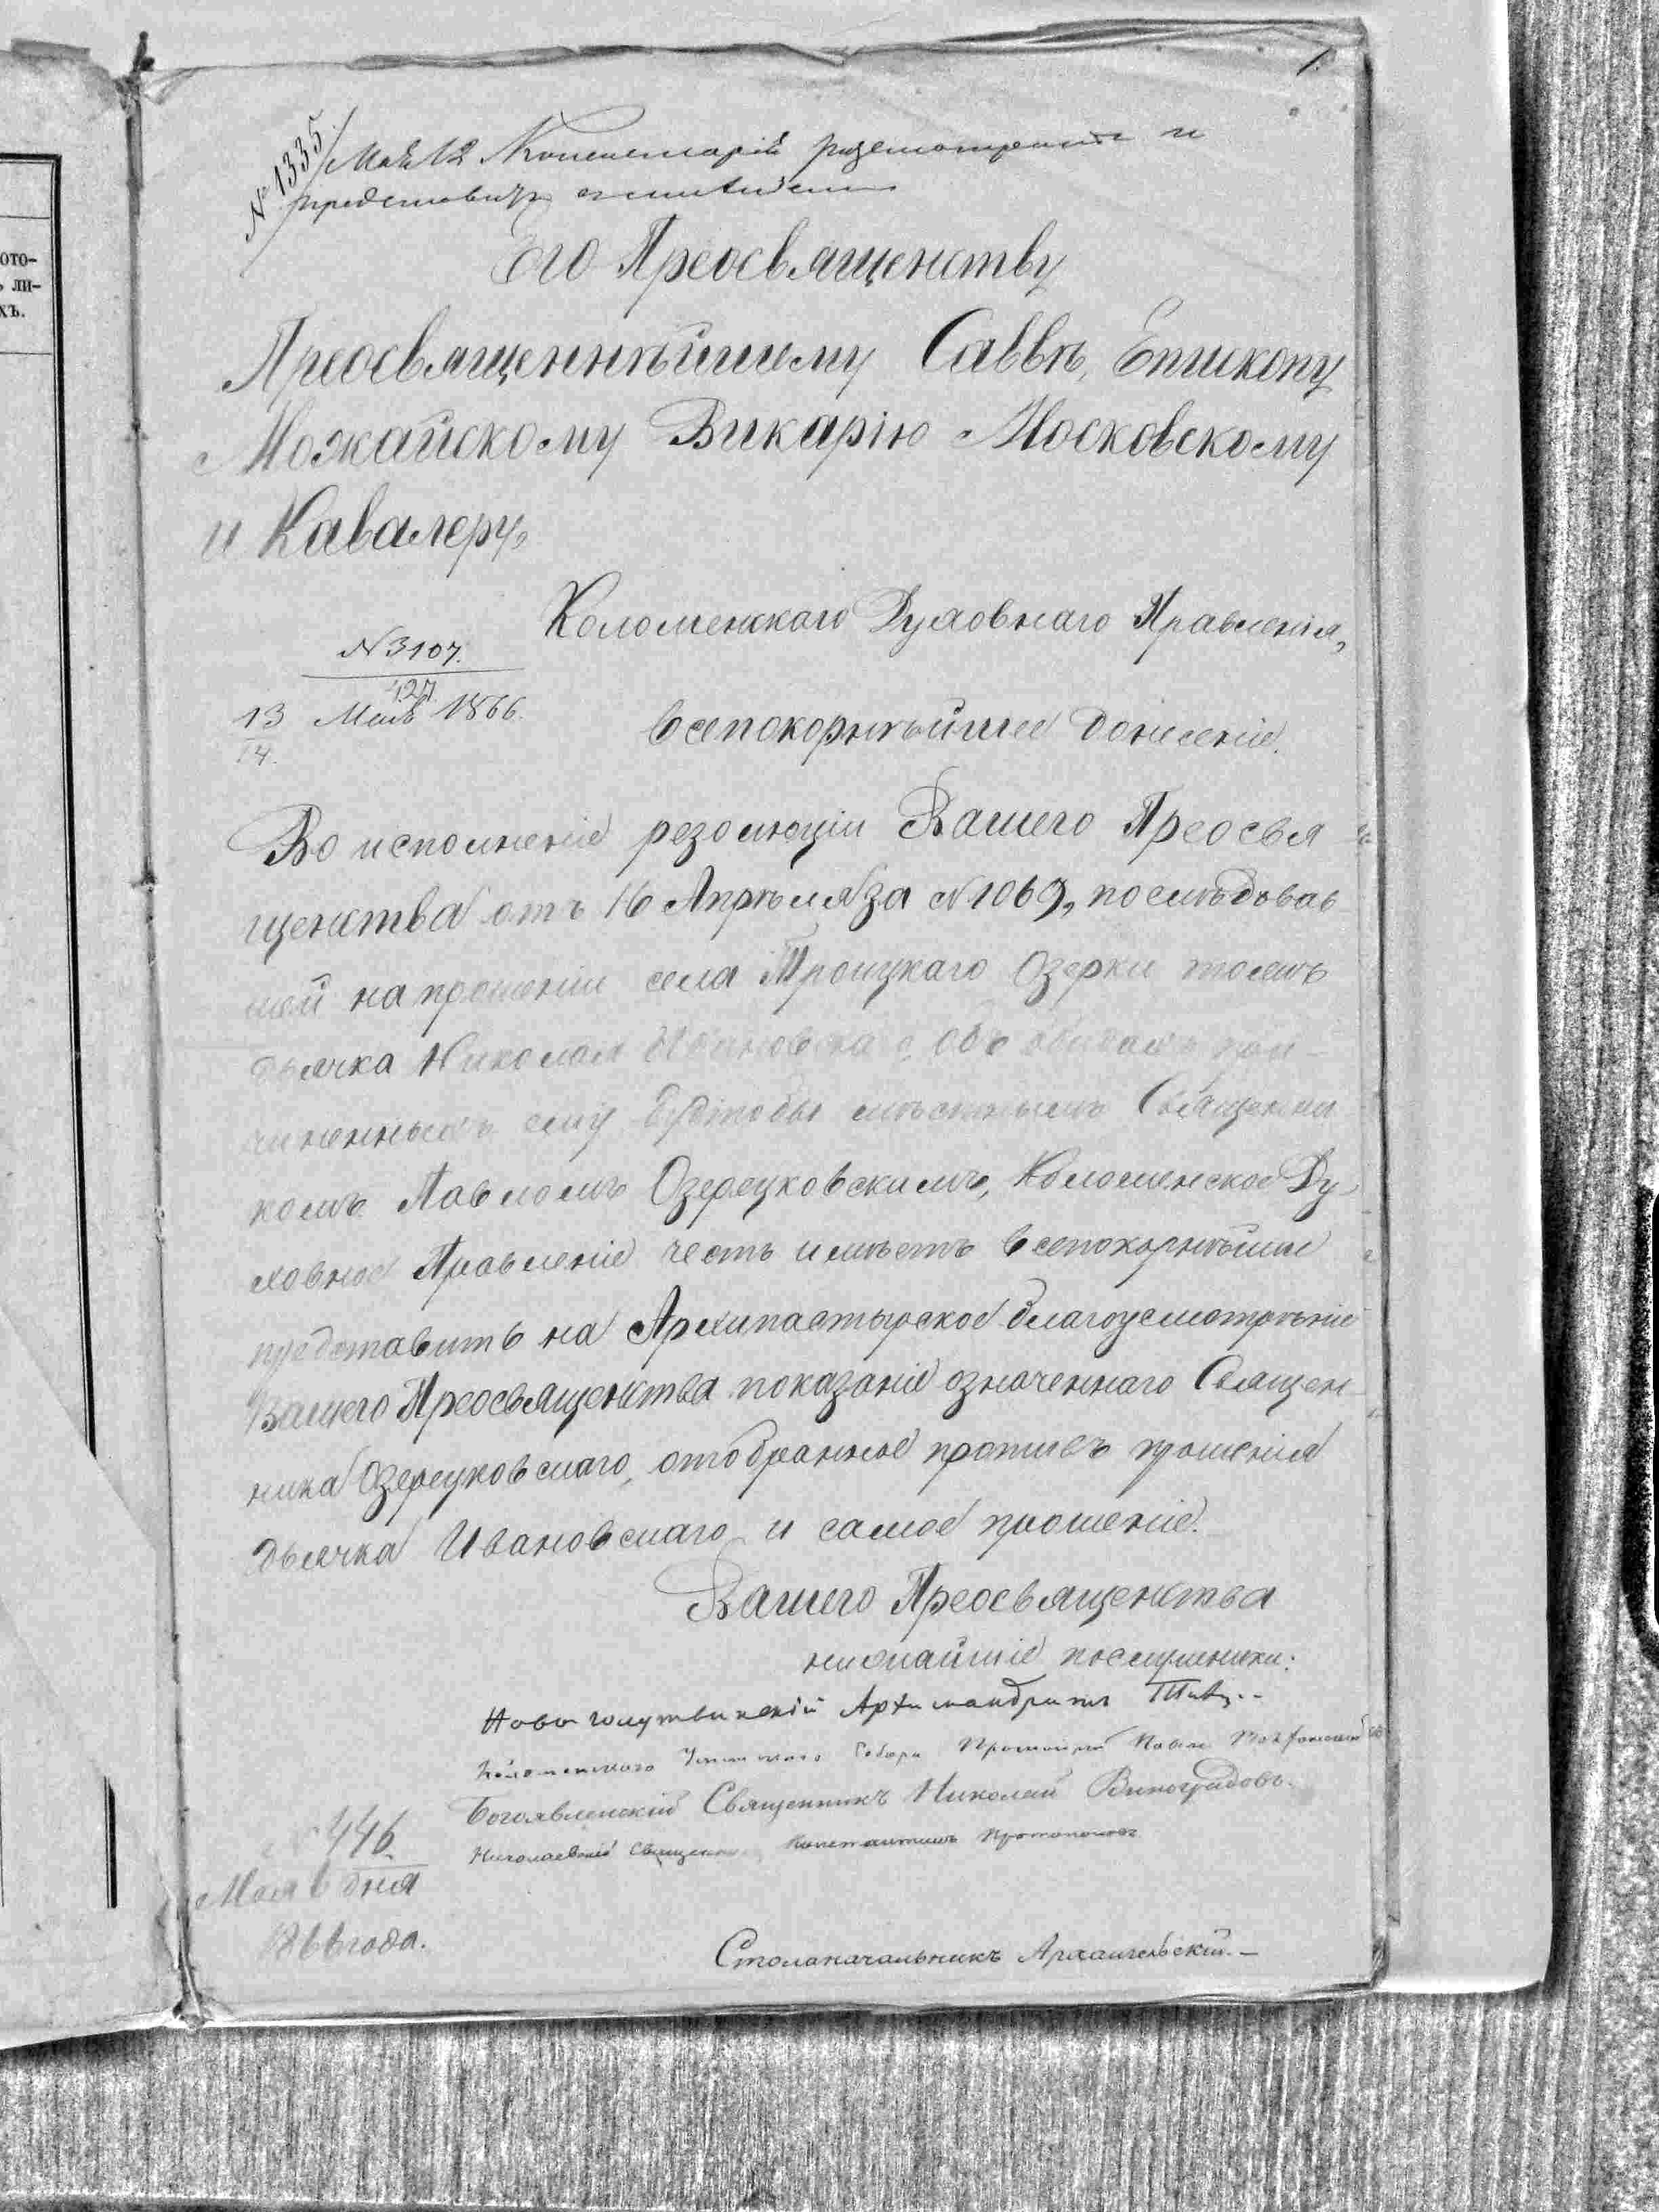 1.
№ 1335. Мая 12. Консисторія разсмотритъ и
представитъ съ мнѣніемъ
Его Преосвященству
Преосвященнѣйшему Саввѣ, Епископу
Можайскому Викарію Московскому
и Кавалеру,
Коломенскаго Духовнаго Правленія,
№ 3107.
427
13 Мая 1866.
14.
всепокорнѣйшее донесеніе.
Во исполненіе резолюціи Вашего Преосвя
щенства отъ 16 Апрѣля за № 1069, послѣдовав
шей на прошеніи села Троицкаго Озерки тожъ
дьячка Николая Ивановскаго, объ обидахъ при-
чиненныхъ ему будтобы мѣстнымъ Священни
комъ Павломъ Озерецковскимъ, Коломенское Ду
ховное Правленіе честь имѣетъ всепокорнѣйше
представить на Архипастырское благоусмотрѣніе
Вашего Преосвященства показаніе означеннаго Священ
ника Озерецковскаго, отобранное противъ прошенія
дьячка Ивановскаго и самое прошеніе.
Вашего Преосвященства
нижайшіе послушники:
Новоголутвинскій Архимандритъ
Коломенскаго Успенскаго Собора Протоіерей Павелъ
Богоявленскій Священникъ Николай Виноградовъ.
Николаевскій Священникъ Константинъ Протопоповъ
446.
Мая 6 дня
1866 года.
Столоначальникъ Архангельскій.
ото-
ли-
хъ.